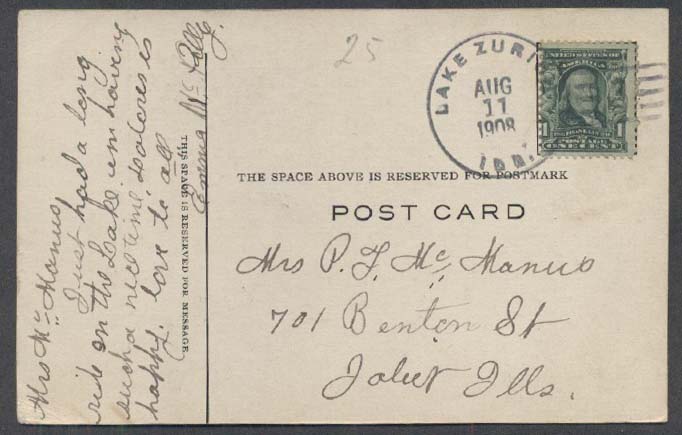 Mrs Mc Manus
Just had a long
ride on the Lake. um having
such a nice time. Dolores is
happy. love to all
Emma Mc
THIS SPACE IS RESERVED FOR MESSAGE
25
LAKE ZURI
AUG
11
1908
ILL.
UNITED STATES OF
AMERICA
1 FRANKLIN 1
POSTAGE
ONE CENT
THE SPACE ABOVE IS RESERVED FOR POSTMARK
POST CARD
Mrs P. J. Mc Manus
701 Benton St
Joliet Ills.